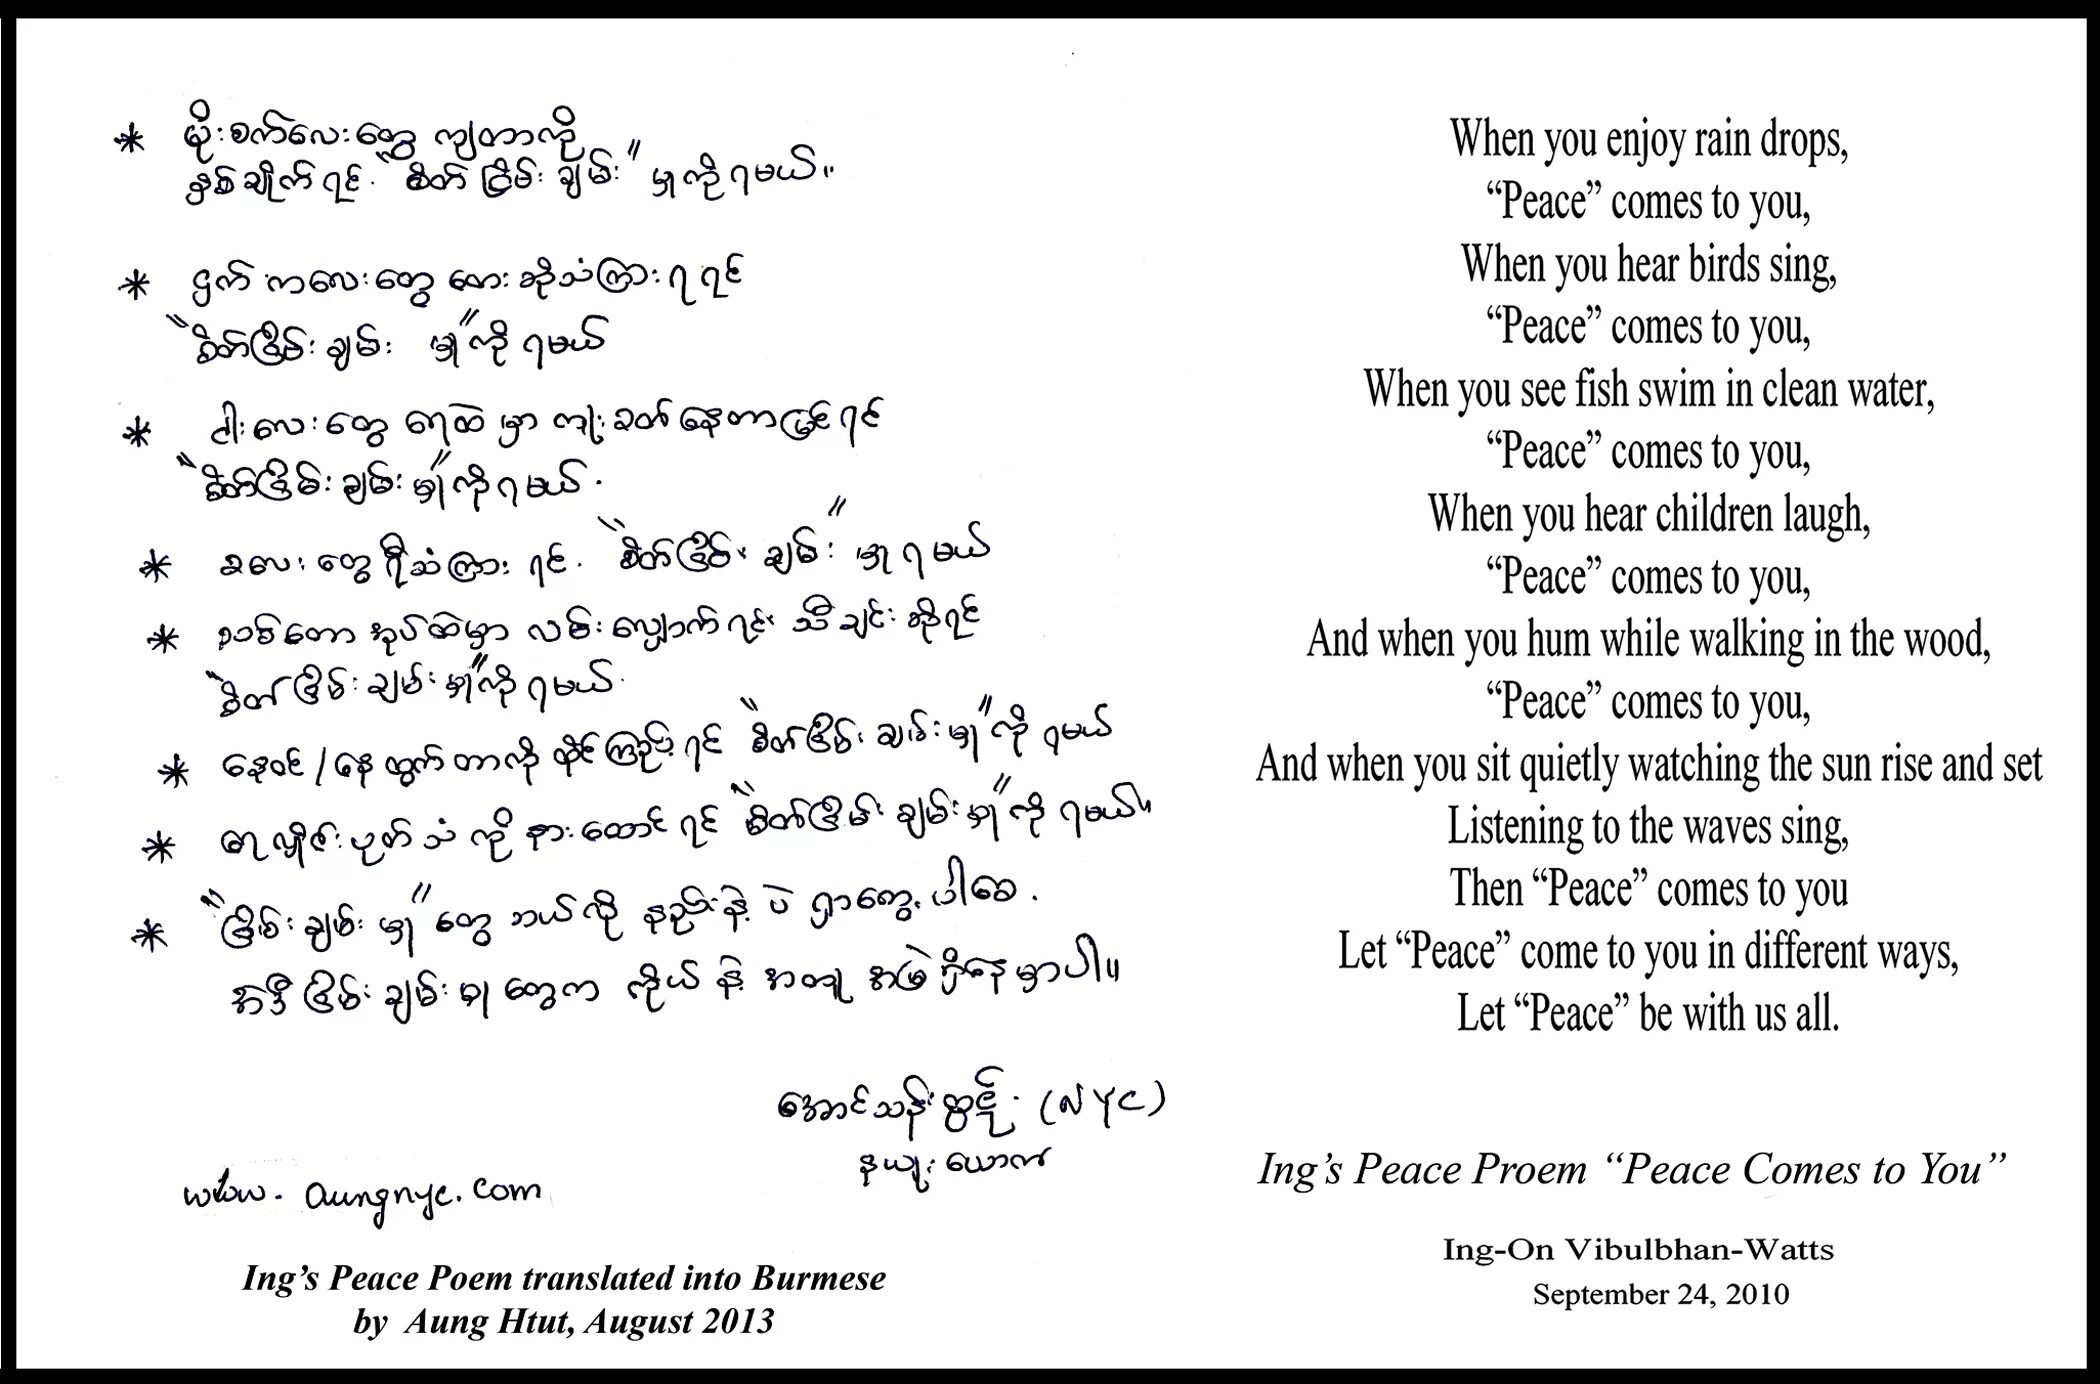 * မိုးစက်လေးတွေ ကျတာကို
နှစ်ချိုက်ရင် "စိတ်ငြိမ်းချမ်း" မှုကိုရမယ်။
* ငှက်ကလေးတွေ တေးဆိုသံကြားရရင်
"စိတ်ငြိမ်းချမ်း မှု"ကိုရမယ်
* ငါးလေးတွေ ရေထဲမှာ ကူးခတ်နေတာမြင်ရင်
"စိတ်ငြိမ်းချမ်းမှု"ကိုရမယ်.
* ခလေးတွေရီသံကြားရင်. "စိတ်ငြိမ်းချမ်း" မှုရမယ်
* သစ်တောအုပ်ထဲမှာ လမ်းလျှောက်ရင်း သီချင်းဆိုရင်
"စိတ်ငြိမ်းချမ်းမှု"ကိုရမယ်.
* နေဝင်/နေထွက်တာကို ထိုင်ကြည့်ရင် "စိတ်ငြိမ်းချမ်းမှု"ကိုရမယ်
* ရေလှိုင်းပုတ်သံကို နားထောင်ရင် "စိတ်ငြိမ်းချမ်းမှု"ကိုရမယ်။
* "ငြိမ်းချမ်းမှု"တွေ ဘယ်လိုနည်းနဲ့ပဲ ရှာတွေ့ပါစေ.
အဲဒီငြိမ်းချမ်းမှုတွေက ကိုယ်နဲ့အတူ အမြဲရှိနေမှာပါ။
(NYC)
နယူးယောက်
www.aungnyc.com
Ing's Peace Poem translated into Burmese
by Aung Htut, August 2013
When you enjoy rain drops,
“Peace” comes to you,
When you hear birds sing,
“Peace” comes to you,
When you see fish swim in clean water,
“Peace” comes to you,
When you hear children laugh,
“Peace” comes to you,
And when you hum while walking in the wood,
“Peace” comes to you,
And when you sit quietly watching the sun rise and set
Listening to the waves sing,
Then “Peace” comes to you
Let “Peace” come to you in different ways,
Let “Peace” be with us all.
Ing’s Peace Proem “Peace Comes to You”
Ing-On Vibulbhan-Watts
September 24, 2010